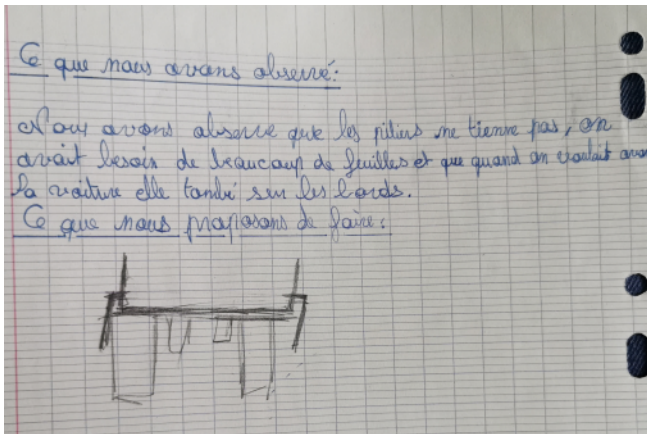 Ce que nous avons observé:
Nous avons observé que les piliers ne tienne pas, on
avait besoin de beaucoup de feuilles et que quand on voulait
la voiture elle tombé sur les bords.
Ce que nous proposons de faire: